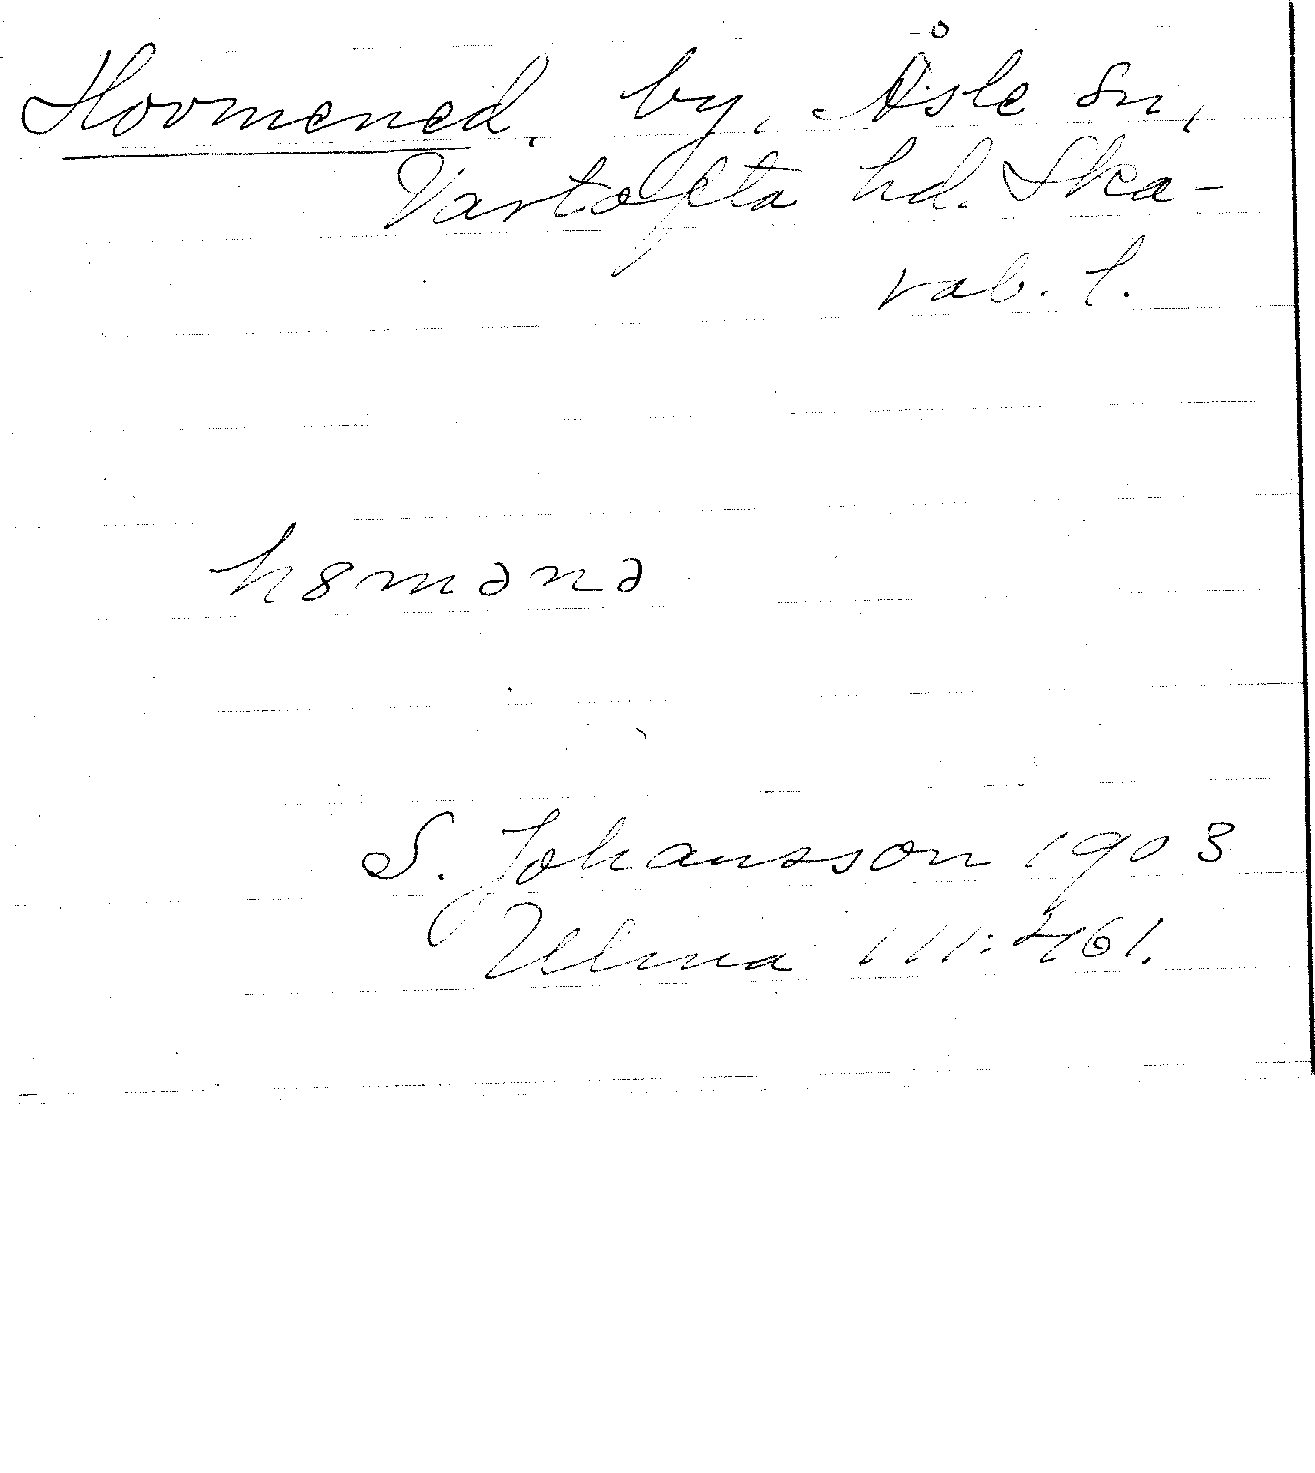 Hovmened, by, Åsle sn,
Vartofta hd. Ska-
rab. l.
h8mənə
S. Johansson 1903
Ulma 111:461.